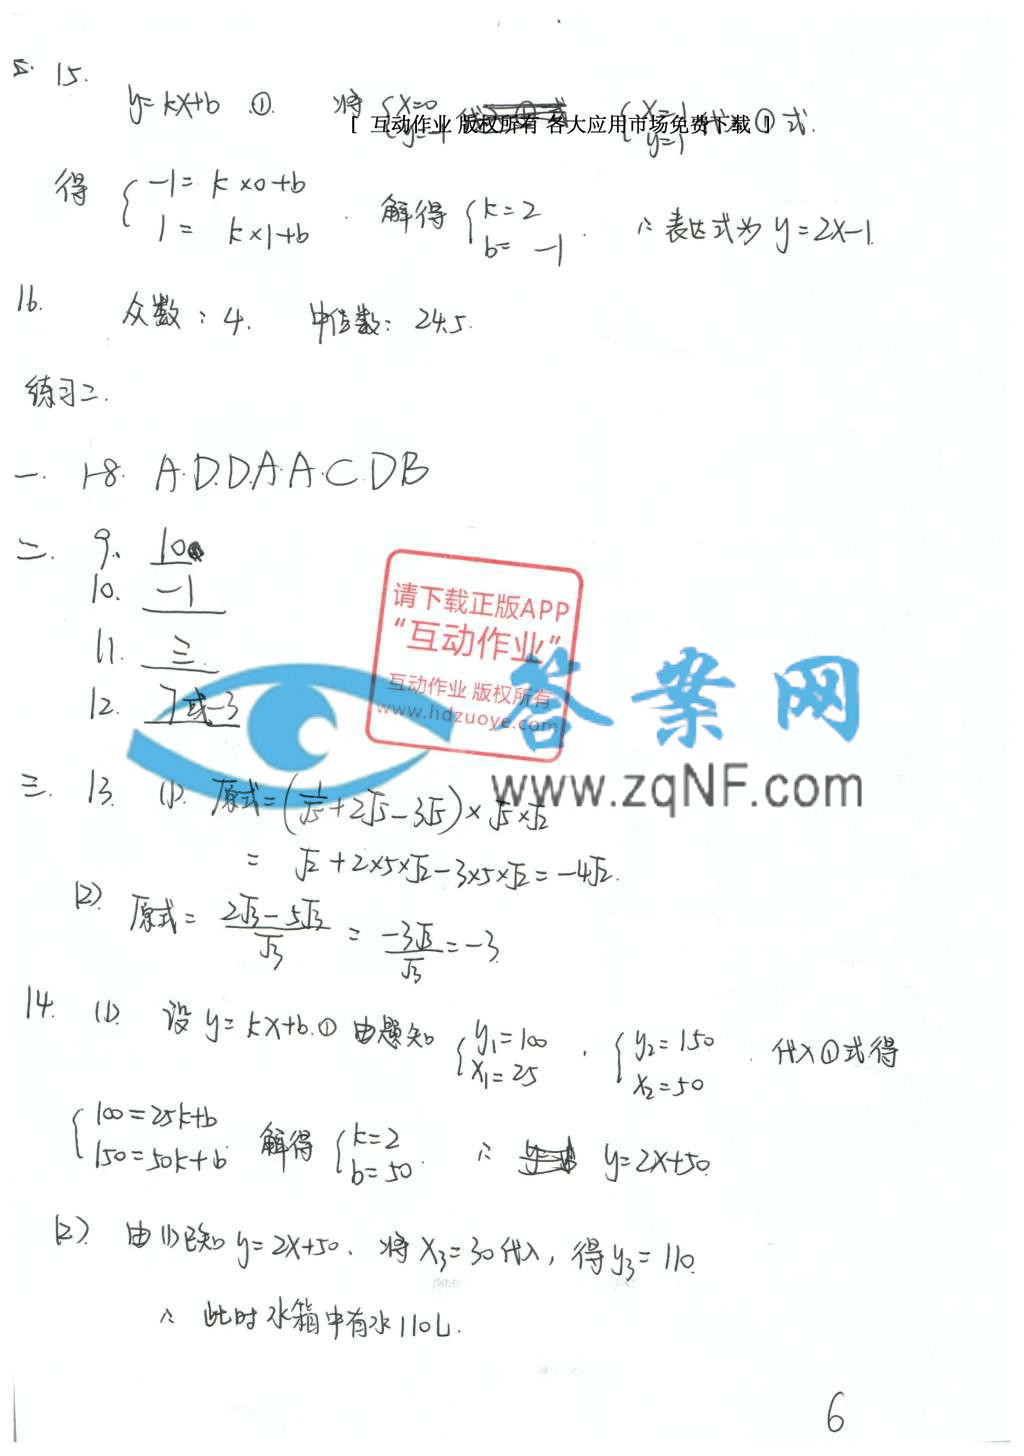 三. 15.
y=kx+b ①. 将 {x=0 y=-1 {x=1 y=1 代入①式.
[ 互动作业 版权所有 各大应用市场免费下载 ]
得 {-1=k×0+b 1=k×1+b . 解得 {k=2 b=-1 . ∴表达式为 y=2x-1.
16. 众数: 4. 中位数: 24.5.
练习二.
一. 1-8. A.D.D.A.A.C.D B
二. 9. 10
10. -1
11. 三.
12. 7或-3
请下载正版APP
“互动作业”
互动作业 版权所有
www.hdzuoye.com
答案网
www.zqNF.com
三. 13. (1). 原式=(1/√5+2√5-3√5)×√5×√2
= √2+2×5×√2-3×5×√2=-4√2.
(2). 原式= (2√3-5√3)/√3 = -3√3/√3 =-3.
14. (1). 设 y=kx+b.① 由题知 {y₁=100 x₁=25 , {y₂=150 x₂=50 . 代入①式得
{100=25k+b 150=50k+b. 解得 {k=2 b=50 . ∴ y=2x+50.
(2). 由(1)已知 y=2x+50. 将 x₃=30代入, 得 y₃=110.
∴ 此时水箱中有水110L.
6